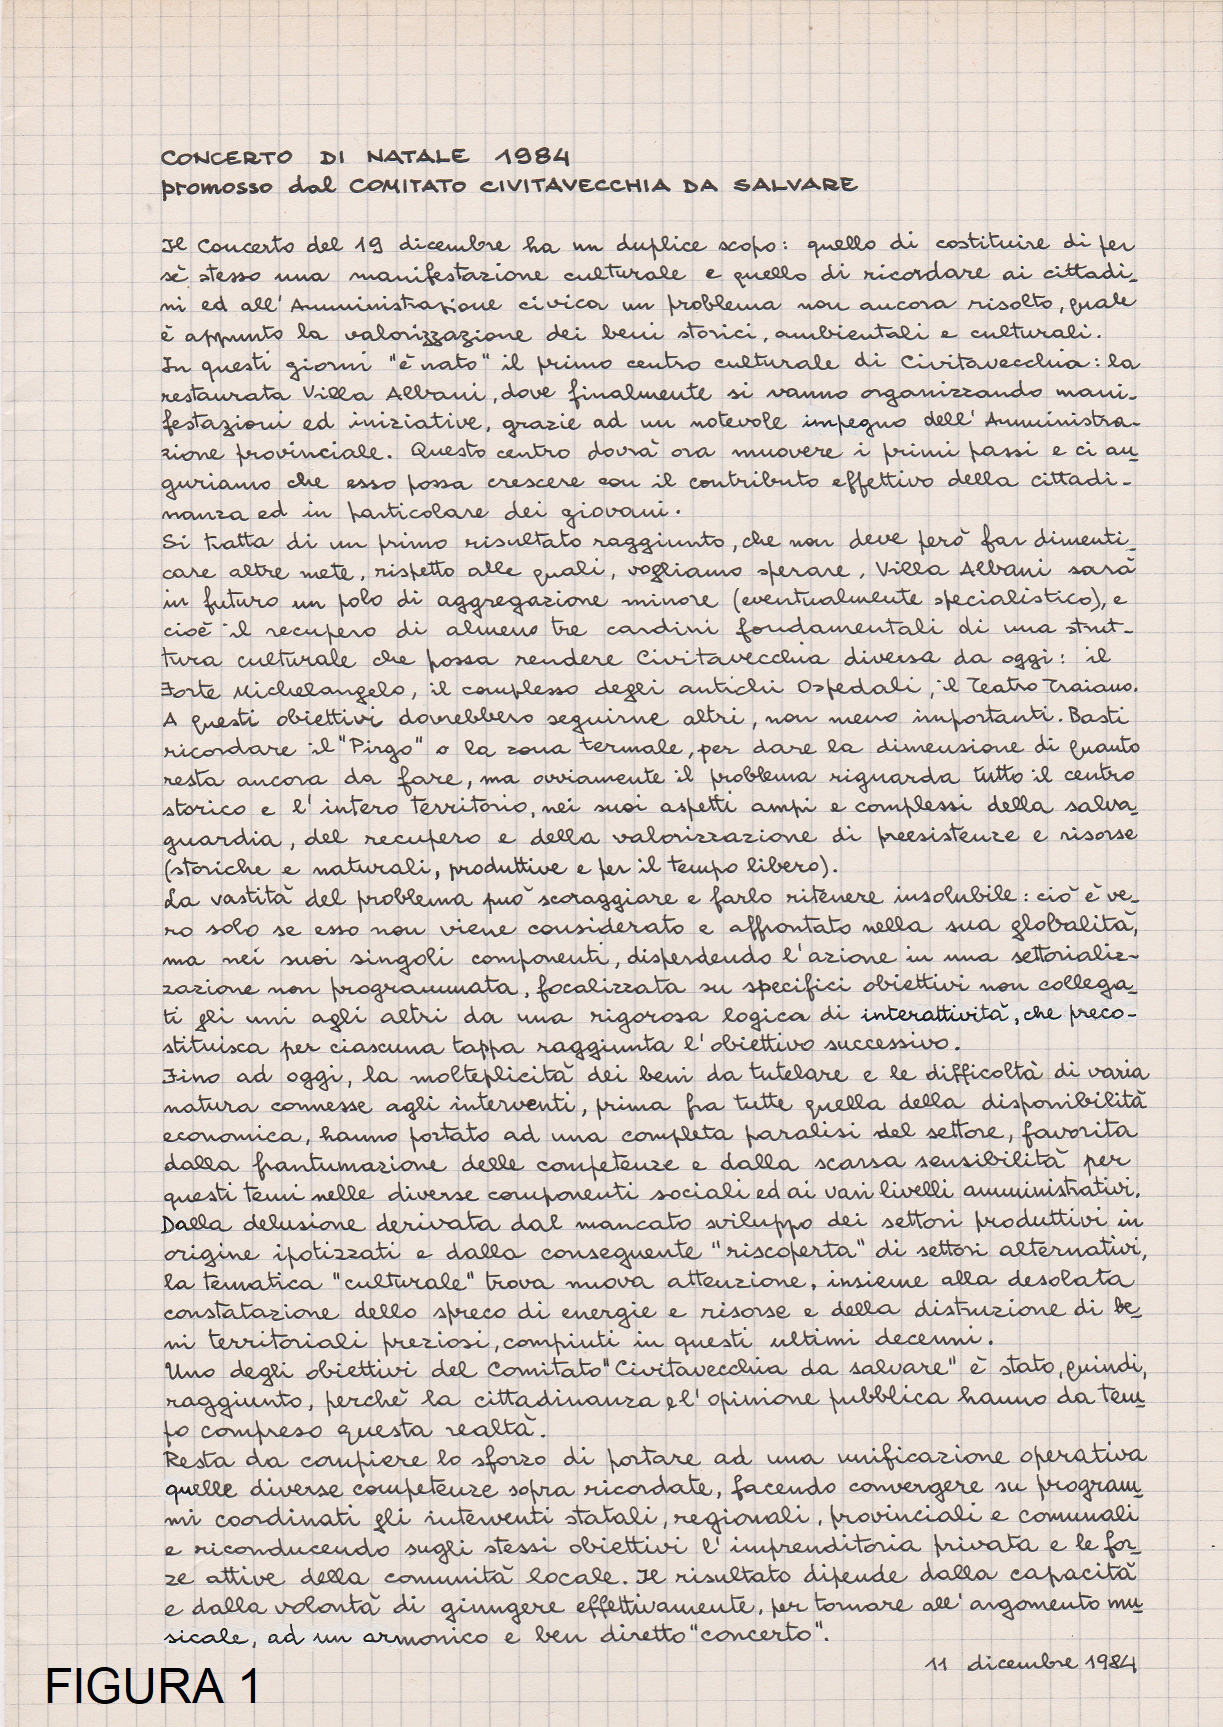 CONCERTO DI NATALE 1984
promosso dal COMITATO CIVITAVECCHIA DA SALVARE
Il Concerto del 19 dicembre ha un duplice scopo: quello di costituire di per
sè stesso una manifestazione culturale e quello di ricordare ai cittadi-
ni ed all'Amministrazione civica un problema non ancora risolto, quale
è appunto la valorizzazione dei beni storici, ambientali e culturali.
In questi giorni "è nato" il primo centro culturale di Civitavecchia: la
restaurata Villa Albani, dove finalmente si vanno organizzando mani-
festazioni ed iniziative, grazie ad un notevole impegno dell'Amministra-
zione provinciale. Questo centro dovrà ora muovere i primi passi e ci au
guriamo che esso possa crescere con il contributo effettivo della cittadi-
nanza ed in particolare dei giovani.
Si tratta di un primo risultato raggiunto, che non deve però far dimenti-
care altre mete, rispetto alle quali, vogliamo sperare, Villa Albani sarà
in futuro un polo di aggregazione minore (eventualmente specialistico), e
cioè il recupero di almeno tre cardini fondamentali di una strut-
tura culturale che possa rendere Civitavecchia diversa da oggi: il
Forte Michelangelo, il complesso degli antichi Ospedali, il Teatro Traiano.
A questi obiettivi dovrebbero seguirne altri, non meno importanti. Basti
ricordare il "Pirgo" o la zona termale, per dare la dimensione di quanto
resta ancora da fare, ma ovviamente il problema riguarda tutto il centro
storico e l'intero territorio, nei suoi aspetti ampi e complessi della salva
guardia, del recupero e della valorizzazione di preesistenze e risorse
(storiche e naturali, produttive e per il tempo libero).
La vastità del problema può scoraggiare e farlo ritenere insolubile: ciò è ve-
ro solo se esso non viene considerato e affrontato nella sua globalità,
ma nei suoi singoli componenti, disperdendo l'azione in una settorializ-
zazione non programmata, focalizzata su specifici obiettivi non collega
ti gli uni agli altri da una rigorosa logica di interattività, che preco-
stituisca per ciascuna tappa raggiunta l'obiettivo successivo.
Fino ad oggi, la molteplicità dei beni da tutelare e le difficoltà di varia
natura connesse agli interventi, prima fra tutte quella della disponibilità
economica, hanno portato ad una completa paralisi del settore, favorita
dalla frantumazione delle competenze e dalla scarsa sensibilità per
questi temi nelle diverse componenti sociali ed ai vari livelli amministrativi.
Dalla delusione derivata dal mancato sviluppo dei settori produttivi in
origine ipotizzati e dalla conseguente "riscoperta" di settori alternativi,
la tematica "culturale" trova nuova attenzione, insieme alla desolata
constatazione dello spreco di energie e risorse e della distruzione di be
ni territoriali preziosi, compiuti in questi ultimi decenni.
Uno degli obiettivi del Comitato "Civitavecchia da salvare" è stato, quindi,
raggiunto, perchè la cittadinanza e l'opinione pubblica hanno da tem
po compreso questa realtà.
Resta da compiere lo sforzo di portare ad una unificazione operativa
quelle diverse competenze sopra ricordate, facendo convergere su program
mi coordinati gli interventi statali, regionali, provinciali e comunali
e riconducendo sugli stessi obiettivi l'imprenditoria privata e le for
ze attive della comunità locale. Il risultato dipende dalla capacità
e dalla volontà di giungere effettivamente, per tornare all'argomento mu
sicale, ad un armonico e ben diretto "concerto".
11 dicembre 1984
FIGURA 1